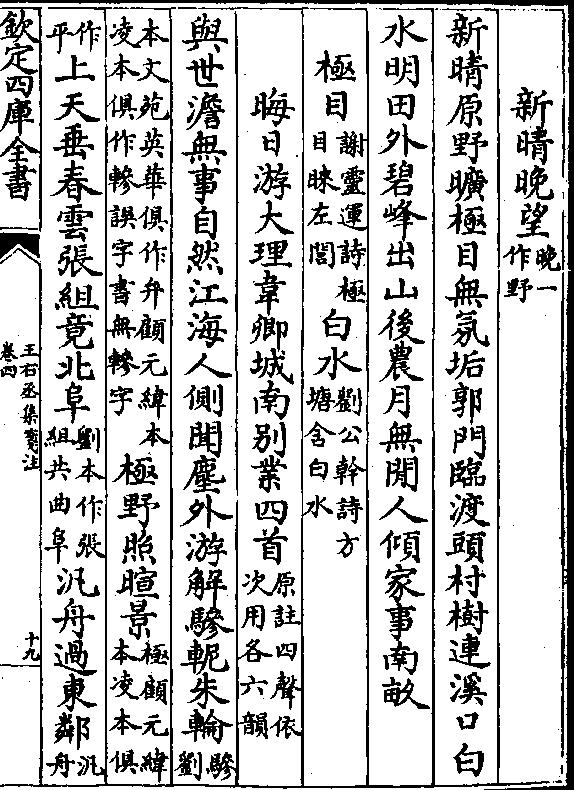 新晴晚望晚一作野
新晴原野曠極目無氛垢郭門臨渡頭村樹連溪口白
水明田外碧峰出山後農月無閒人傾家事南畝
極目謝靈運詩極目睞左闊白水劉公幹詩方塘含白水
晦日游大理韋卿城南別業四首原註四聲依次用各六韻
與世澹無事自然江海人側聞塵外游解驂軛朱輪驂劉
本文苑英華俱作弁顧元緯本凌本俱作軬誤字書無軬字極野照暄景極顧元緯本凌本俱
作平上天垂春雲張組竟北阜劉本作張組共曲阜汎舟過東鄰汎舟
欽定四庫全書
王右丞集箋注
卷四
十九